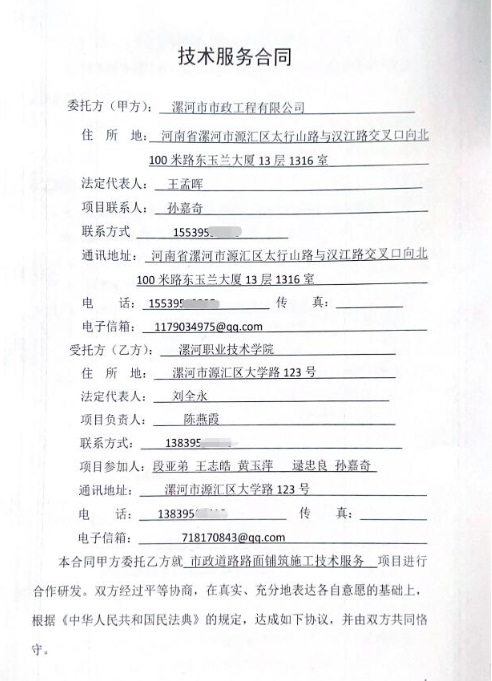 技术服务合同
委托方（甲方）： 漯河市市政工程有限公司
住 所 地： 河南省漯河市源汇区太行山路与汉江路交叉口向北
100 米路东玉兰大厦 13 层 1316 室
法定代表人： 王孟晖
项目联系人： 孙嘉奇
联系方式 155395
通讯地址： 河南省漯河市源汇区太行山路与汉江路交叉口向北
100 米路东玉兰大厦 13 层 1316 室
电 话： 155395 传 真：
电子信箱： 1179034975@qq.com
受托方（乙方）： 漯河职业技术学院
住 所 地： 漯河市源汇区大学路 123 号
法定代表人： 刘全永
项目负责人： 陈燕霞
联系方式： 138395
项目参加人： 段亚弟 王志皓 黄玉萍 逯忠良 孙嘉奇
通讯地址： 漯河市源汇区大学路 123 号
电 话： 138395 传 真：
电子信箱： 718170843@qq.com
本合同甲方委托乙方就 市政道路路面铺筑施工技术服务 项目进行
合作研发。双方经过平等协商，在真实、充分地表达各自意愿的基础上，
根据《中华人民共和国民法典》的规定，达成如下协议，并由双方共同恪
守。